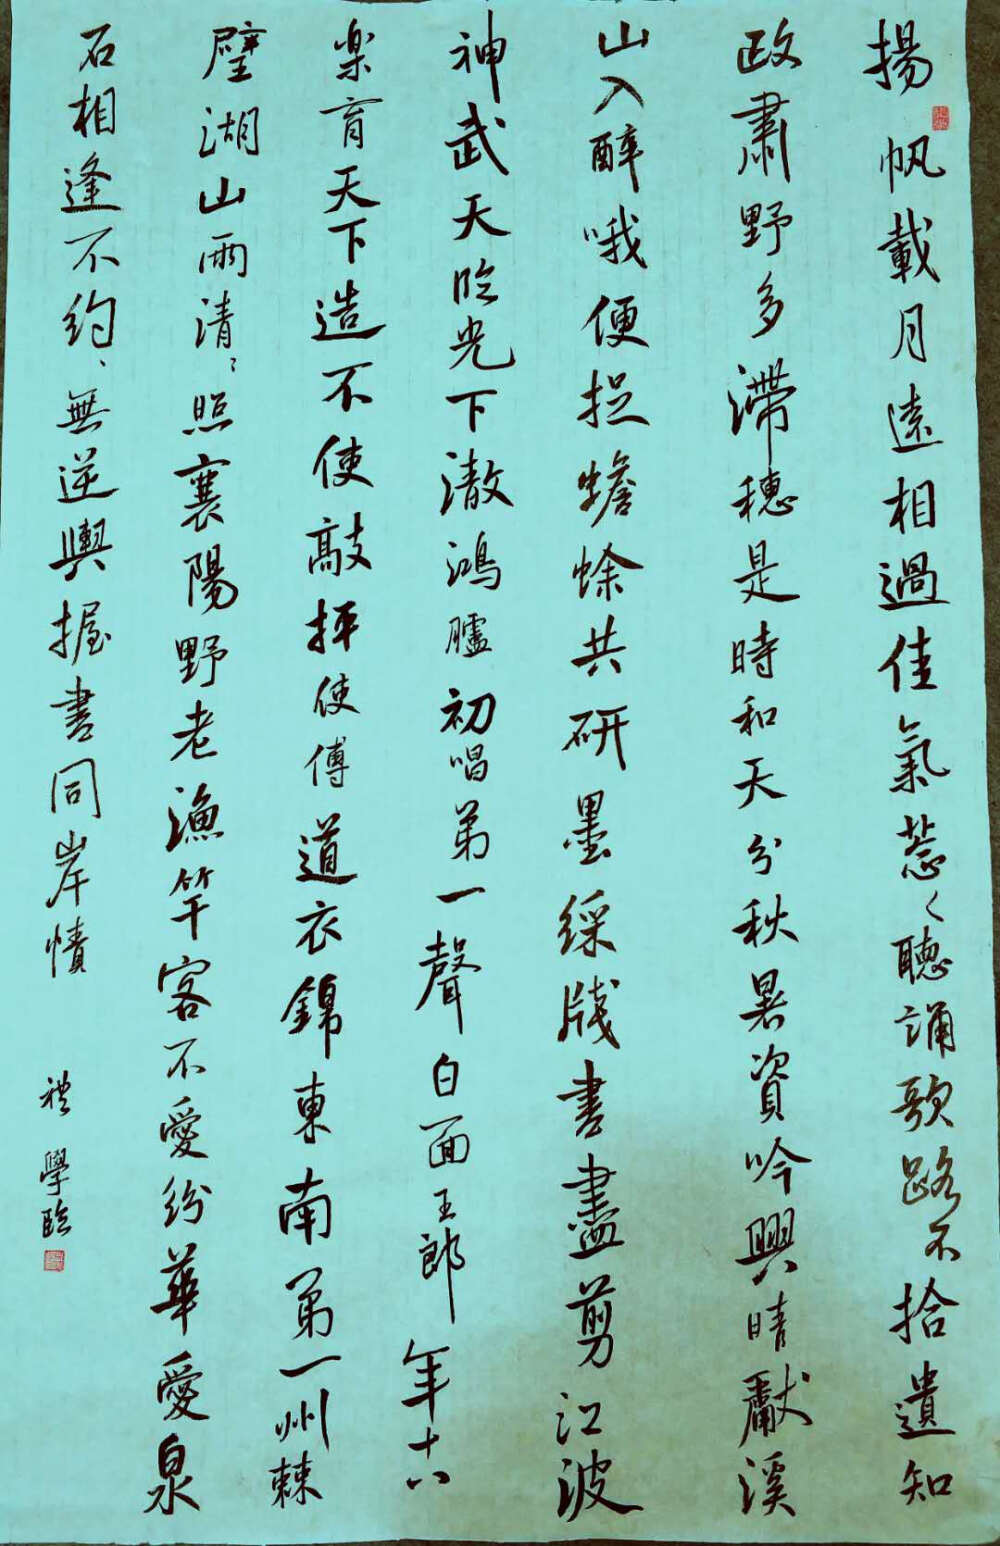 揚帆載月遠相過佳氣蔥〻聽誦歌路不拾遺知
政肅野多滯穗是時和天分秋暑資吟興晴獻溪
山入醉哦便捉蟾蜍共研墨綵牋書盡剪江波
神武天臨光下澈鴻臚初唱第一聲白面王郎年十八
樂育天下造不使敲抨使傅道衣錦東南第一州棘
璧湖山兩清〻照襄陽野老漁竿客不愛紛華愛泉
石相逢不約〻無逆輿握書同岸幘
禮學臨